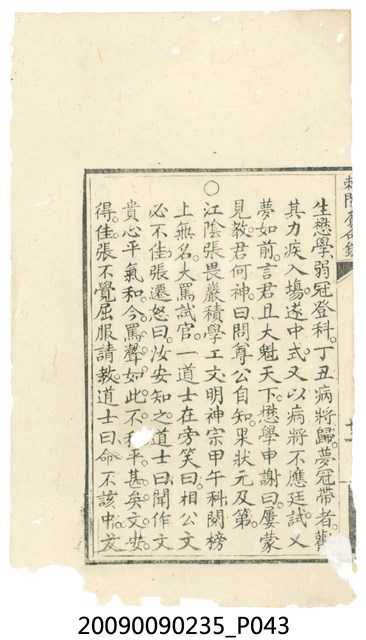 生懋學弱冠登科。丁丑病將歸。夢冠帶者勸
其力疾入塲。遂中式。又以病將不應廷試。又
夢如前。言君且大魁天下。懋學申謝曰。屢蒙
見教。君何神。曰問尊公自知。果狀元及第。
○
江陰張畏巖積學工文。明神宗甲午科。闗榜
上無名。大罵試官。一道士在旁笑曰。相公文
必不佳。張遷怒曰。汝安知之。道士曰。聞作文
貴心平氣和。今罵聲如此。不平甚矣。文安
得佳。張不覺屈服請教。道士曰。命不該中。文
20090090235_P043